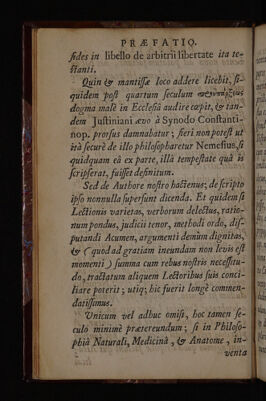 PRÆFATIO.
sides in libello de arbitrii libertate ita te-
stanti.
Quin & mantissæ loco addere licebit, si-
quidem post quartum seculum
dogma malè in Ecclesiâ audire cœpit, & tan-
dem Justiniani ævo à Synodo Constanti-
nop. prorsus damnabatur; fieri non potest ut
ità securè de illo philosopharetur Nemesius, si
quidquam eâ ex parte, illâ tempestate quâ is
scripserat, fuisset definitum.
Sed de Authore nostro hactenus; de scripto
ipso nonnulla supersunt dicenda. Et quidem si
Lectionis varietas, verborum delectus, ratio-
num pondus, judicii tenor, methodi ordo, dis-
putandi Acumen, argumenti demùm dignitas,
& (quod ad gratiam ineundam non levis est
momenti) summa cum rebus nostris necessitu-
do, tractatum aliquem Lectoribus suis conci-
liare poterit; utiq; hic fuerit longè commen-
datissimus.
Unicum vel adhuc omisi, hoc tamen se-
culo minimè prætereundum; si in Philoso-
phiâ Naturali, Medicinâ, & Anatome, in-
venta